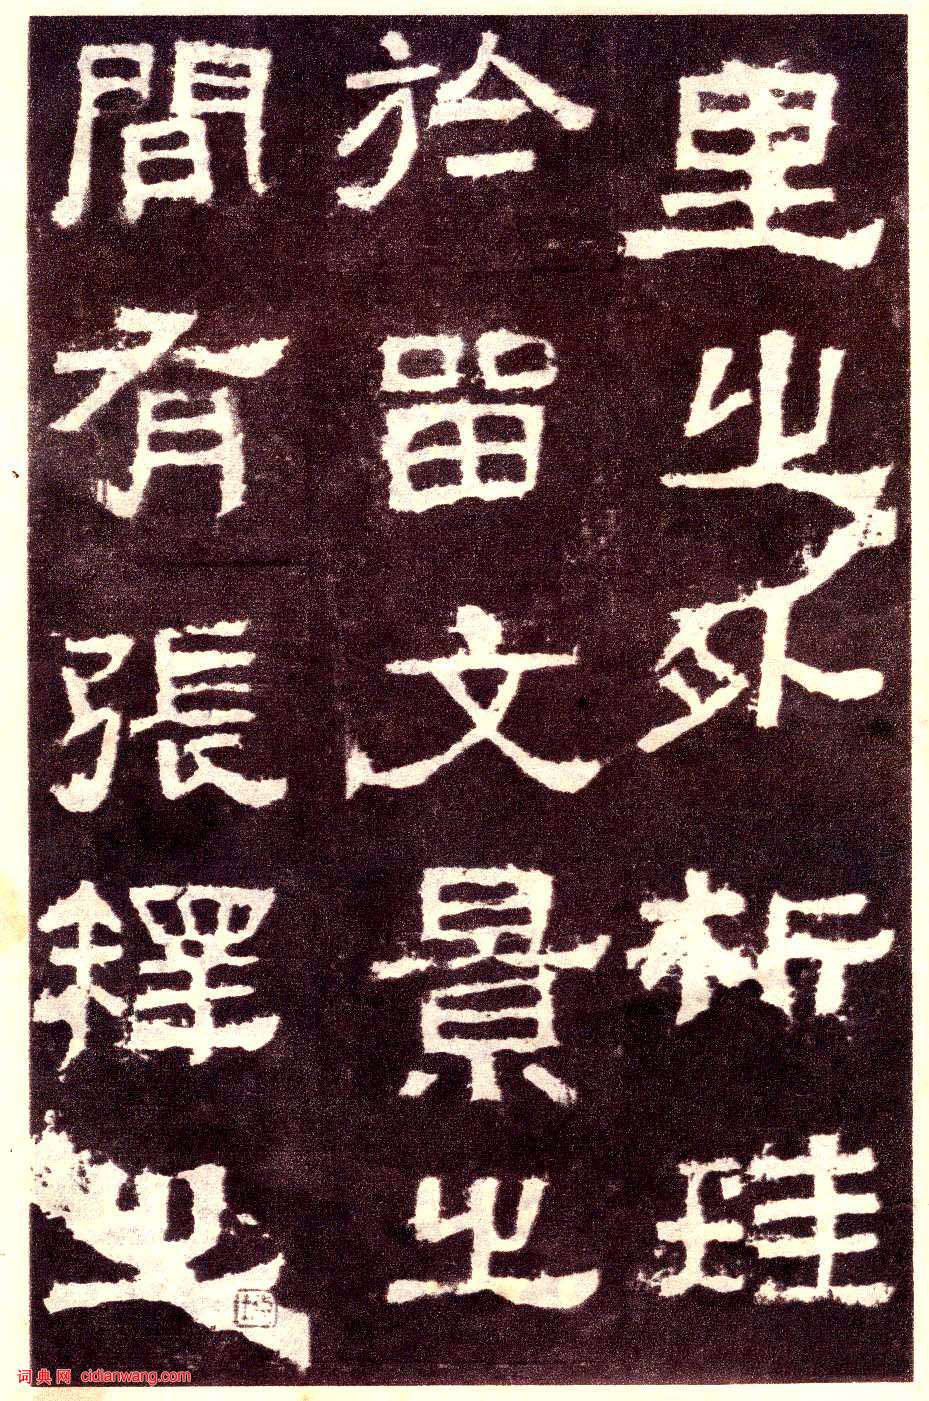 里之外析珪
於留文景之
間有張釋之
词典网 cidianwang.com